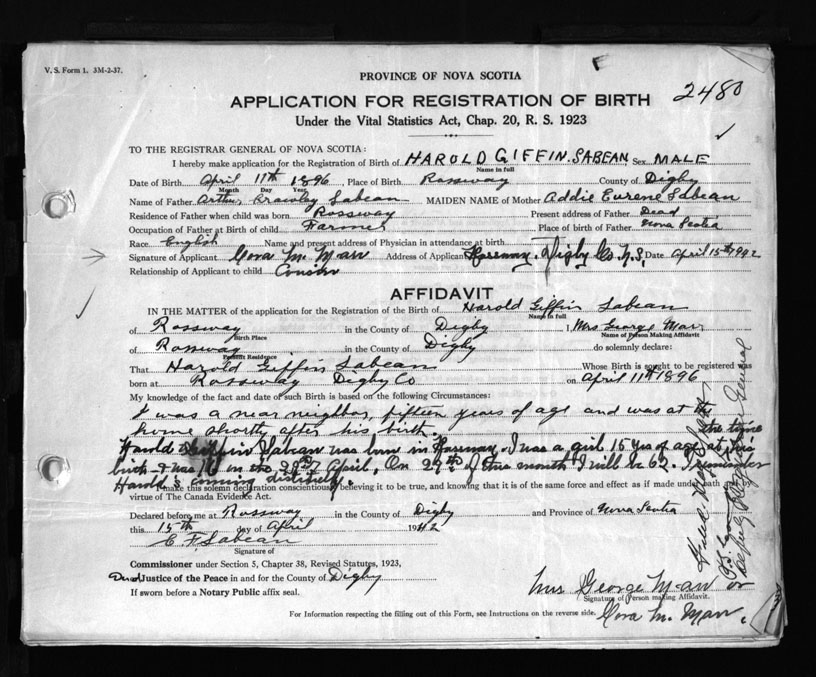 V. S. Form 1. 3M-2-37.
PROVINCE OF NOVA SCOTIA
APPLICATION FOR REGISTRATION OF BIRTH
2480
Under the Vital Statistics Act, Chap. 20, R. S. 1923
TO THE REGISTRAR GENERAL OF NOVA SCOTIA:
I hereby make application for the Registration of Birth of HAROLD GIFFIN. SABEAN Sex MALE
Name in full
Date of Birth April 11th 1896, Place of Birth Rossway County of Digby
Month Day Year
Name of Father Arthur Crawley Sabean MAIDEN NAME of Mother Addie Eurene Sabean
Residence of Father when child was born Rossway Present address of Father Dead
Occupation of Father at Birth of child Farmer Place of birth of Father Nova Scotia
Race English Name and present address of Physician in attendance at birth
Signature of Applicant Cora M. Marr Address of Applicant Rossway. Digby Co N.S. Date April 15th 1942
Relationship of Applicant to child Cousin
AFFIDAVIT
IN THE MATTER of the application for the Registration of the Birth of Harold Giffin Sabean
Name in full
of Rossway in the County of Digby I, Mrs George Marr
Birth Place Name of Person Making Affidavit
of Rossway in the County of Digby do solemnly declare:
Parents Residence
That Harold Giffin Sabean Whose Birth is sought to be registered was
born at Rossway Digby Co on April 11th 1896
My knowledge of the fact and date of such Birth is based on the following Circumstances:
I was a near neighbor, fifteen years of age and was at the
home shortly after his birth.
Harold Giffin Sabean was born in Rossway. I was a girl 15 yrs of age at the time his
birth & was 16 on the 29th April, On 29th of this month I will be 62. I remember
Harold's coming distinctly.
I make this solemn declaration conscientiously believing it to be true, and knowing that it is of the same force and effect as if made under oath and by
virtue of The Canada Evidence Act.
Declared before me at Rossway in the County of Digby and Province of Nova Scotia
this 15th day of April 1942
E F Sabean
Signature of
Commissioner under Section 5, Chapter 38, Revised Statutes, 1923,
Justice of the Peace in and for the County of Digby
If sworn before a Notary Public affix seal.
Mrs George Marr or
Signature of Person making Affidavit.
Cora M. Marr.
For Information respecting the filling out of this Form, see Instructions on the reverse side.
Deputy Registrar General